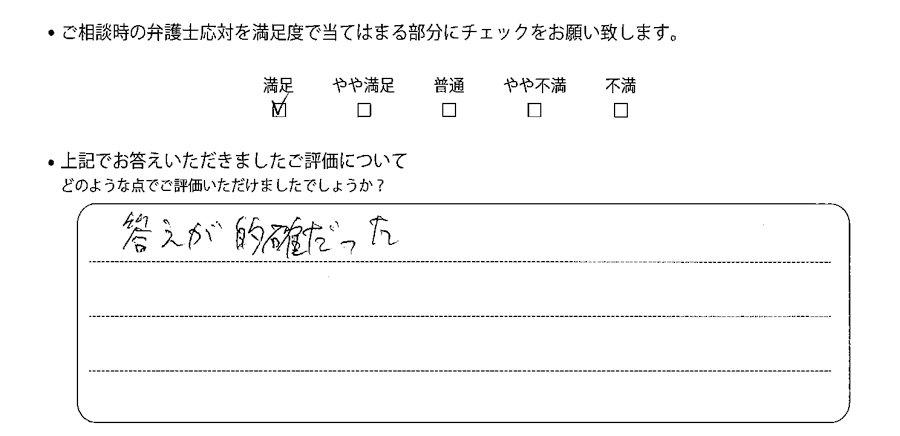 • ご相談時の弁護士応対を満足度で当てはまる部分にチェックをお願い致します。
満足 やや満足 普通 やや不満 不満
☑ □ □ □ □
• 上記でお答えいただきましたご評価について
どのような点でご評価いただけましたでしょうか？
答えが的確だった